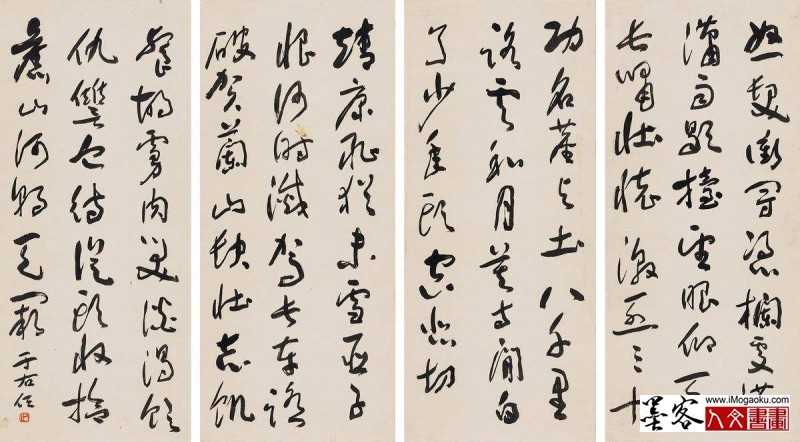 怒髮衝冠憑欄處瀟
瀟雨歇擡望眼仰天
長嘯壯懷激烈三十
功名塵與土八千里
路雲和月莫等閒白
了少年頭空悲切
靖康恥猶未雪臣子
恨何時滅駕長車踏
破賀蘭山缺壯志飢
餐胡虜肉笑談渴飲
仇讐血待從頭收拾
舊山河朝天闕 于右任
墨客
www.iMogaoku.com
人文書畫